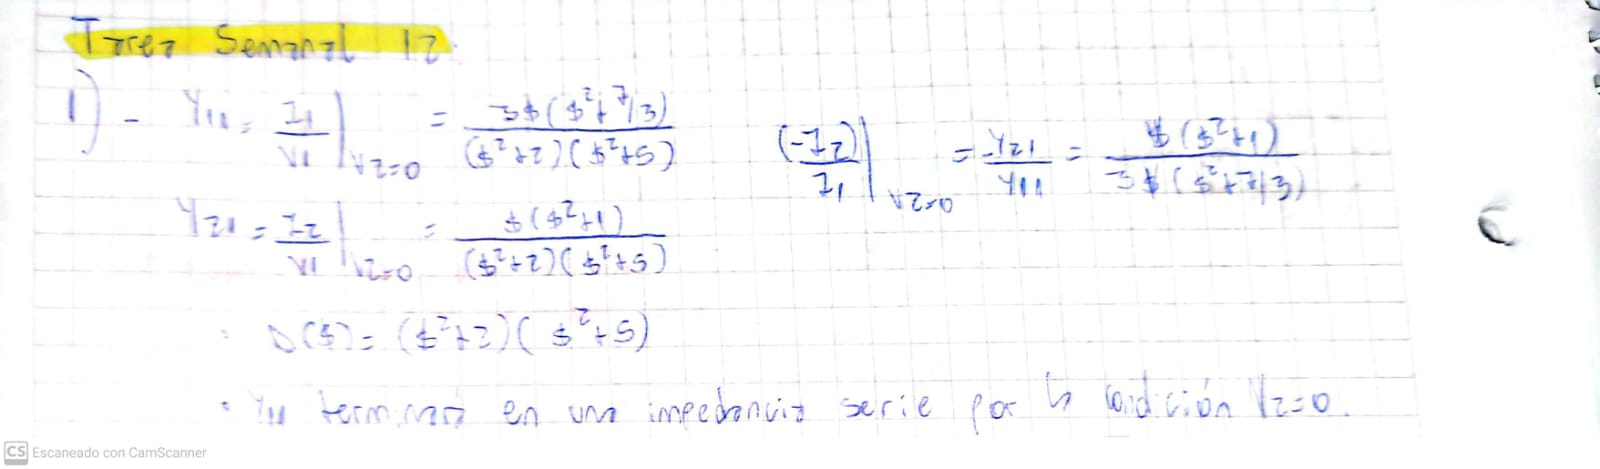 Tarea Semanal 12.
1) - Y11 = I1/V1 | V2=0 = 3$($²+7/3) / ($²+2)($²+5)    (-I2)/I1 | V2=0 = -Y21/Y11 = $($²+1) / 3$($²+7/3)
Y21 = I2/V1 | V2=0 = $($²+1) / ($²+2)($²+5)
· D($) = ($²+2)($²+5)
· Y11 terminará en una impedancia serie por la condición V2=0.
CS Escaneado con CamScanner